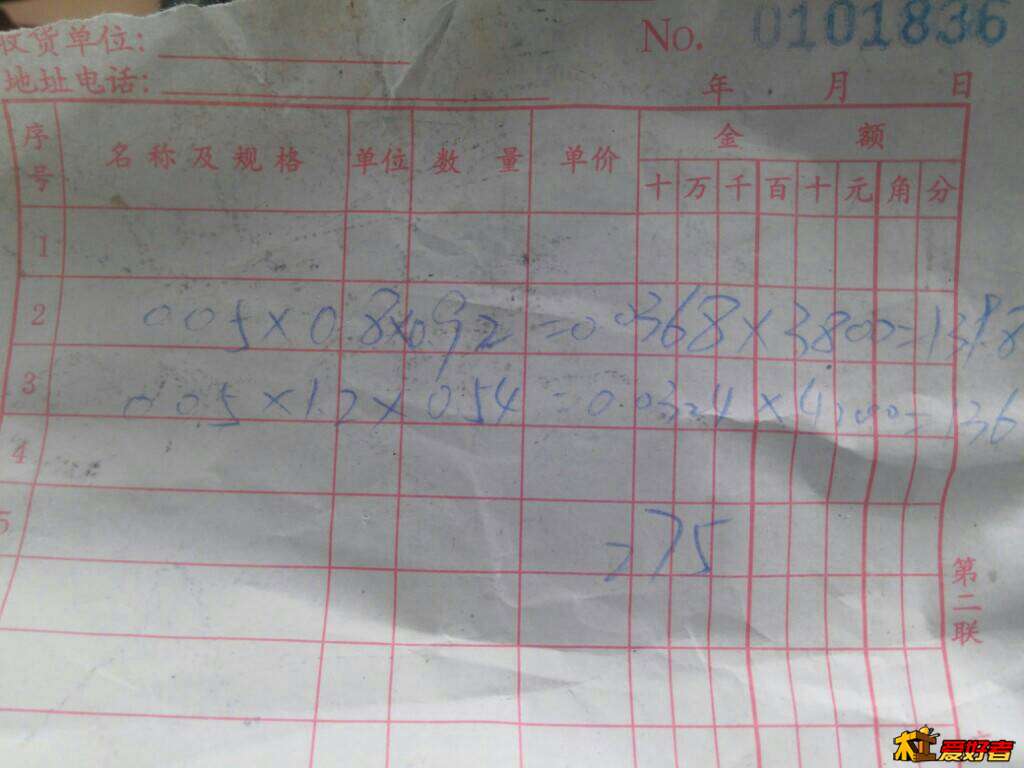 收货单位:
No. 0101836
地址电话:
年 月 日
序号 名称及规格 单位 数量 单价 金额
十 万 千 百 十 元 角 分
1
2 0.05×0.8×0.92=0.0368×3800=139.8
3 0.05×1.2×0.54=0.0324×4200=136
4
5 275
第二联
红木爱好者